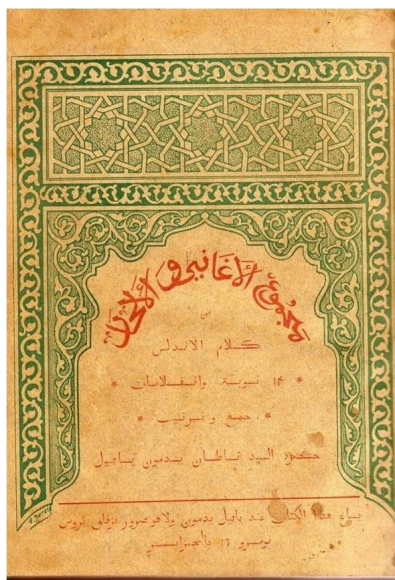 مجموع الأغاني والألحان
من
كلام الاندلس
* ١٤ نوبة وانقلابات *
* جمع وترتيب *
السيد ناطان يدمون يافيل
يباع هذا الكتاب عند يافيل يدمون
نومرو ١٦ بالجزاير